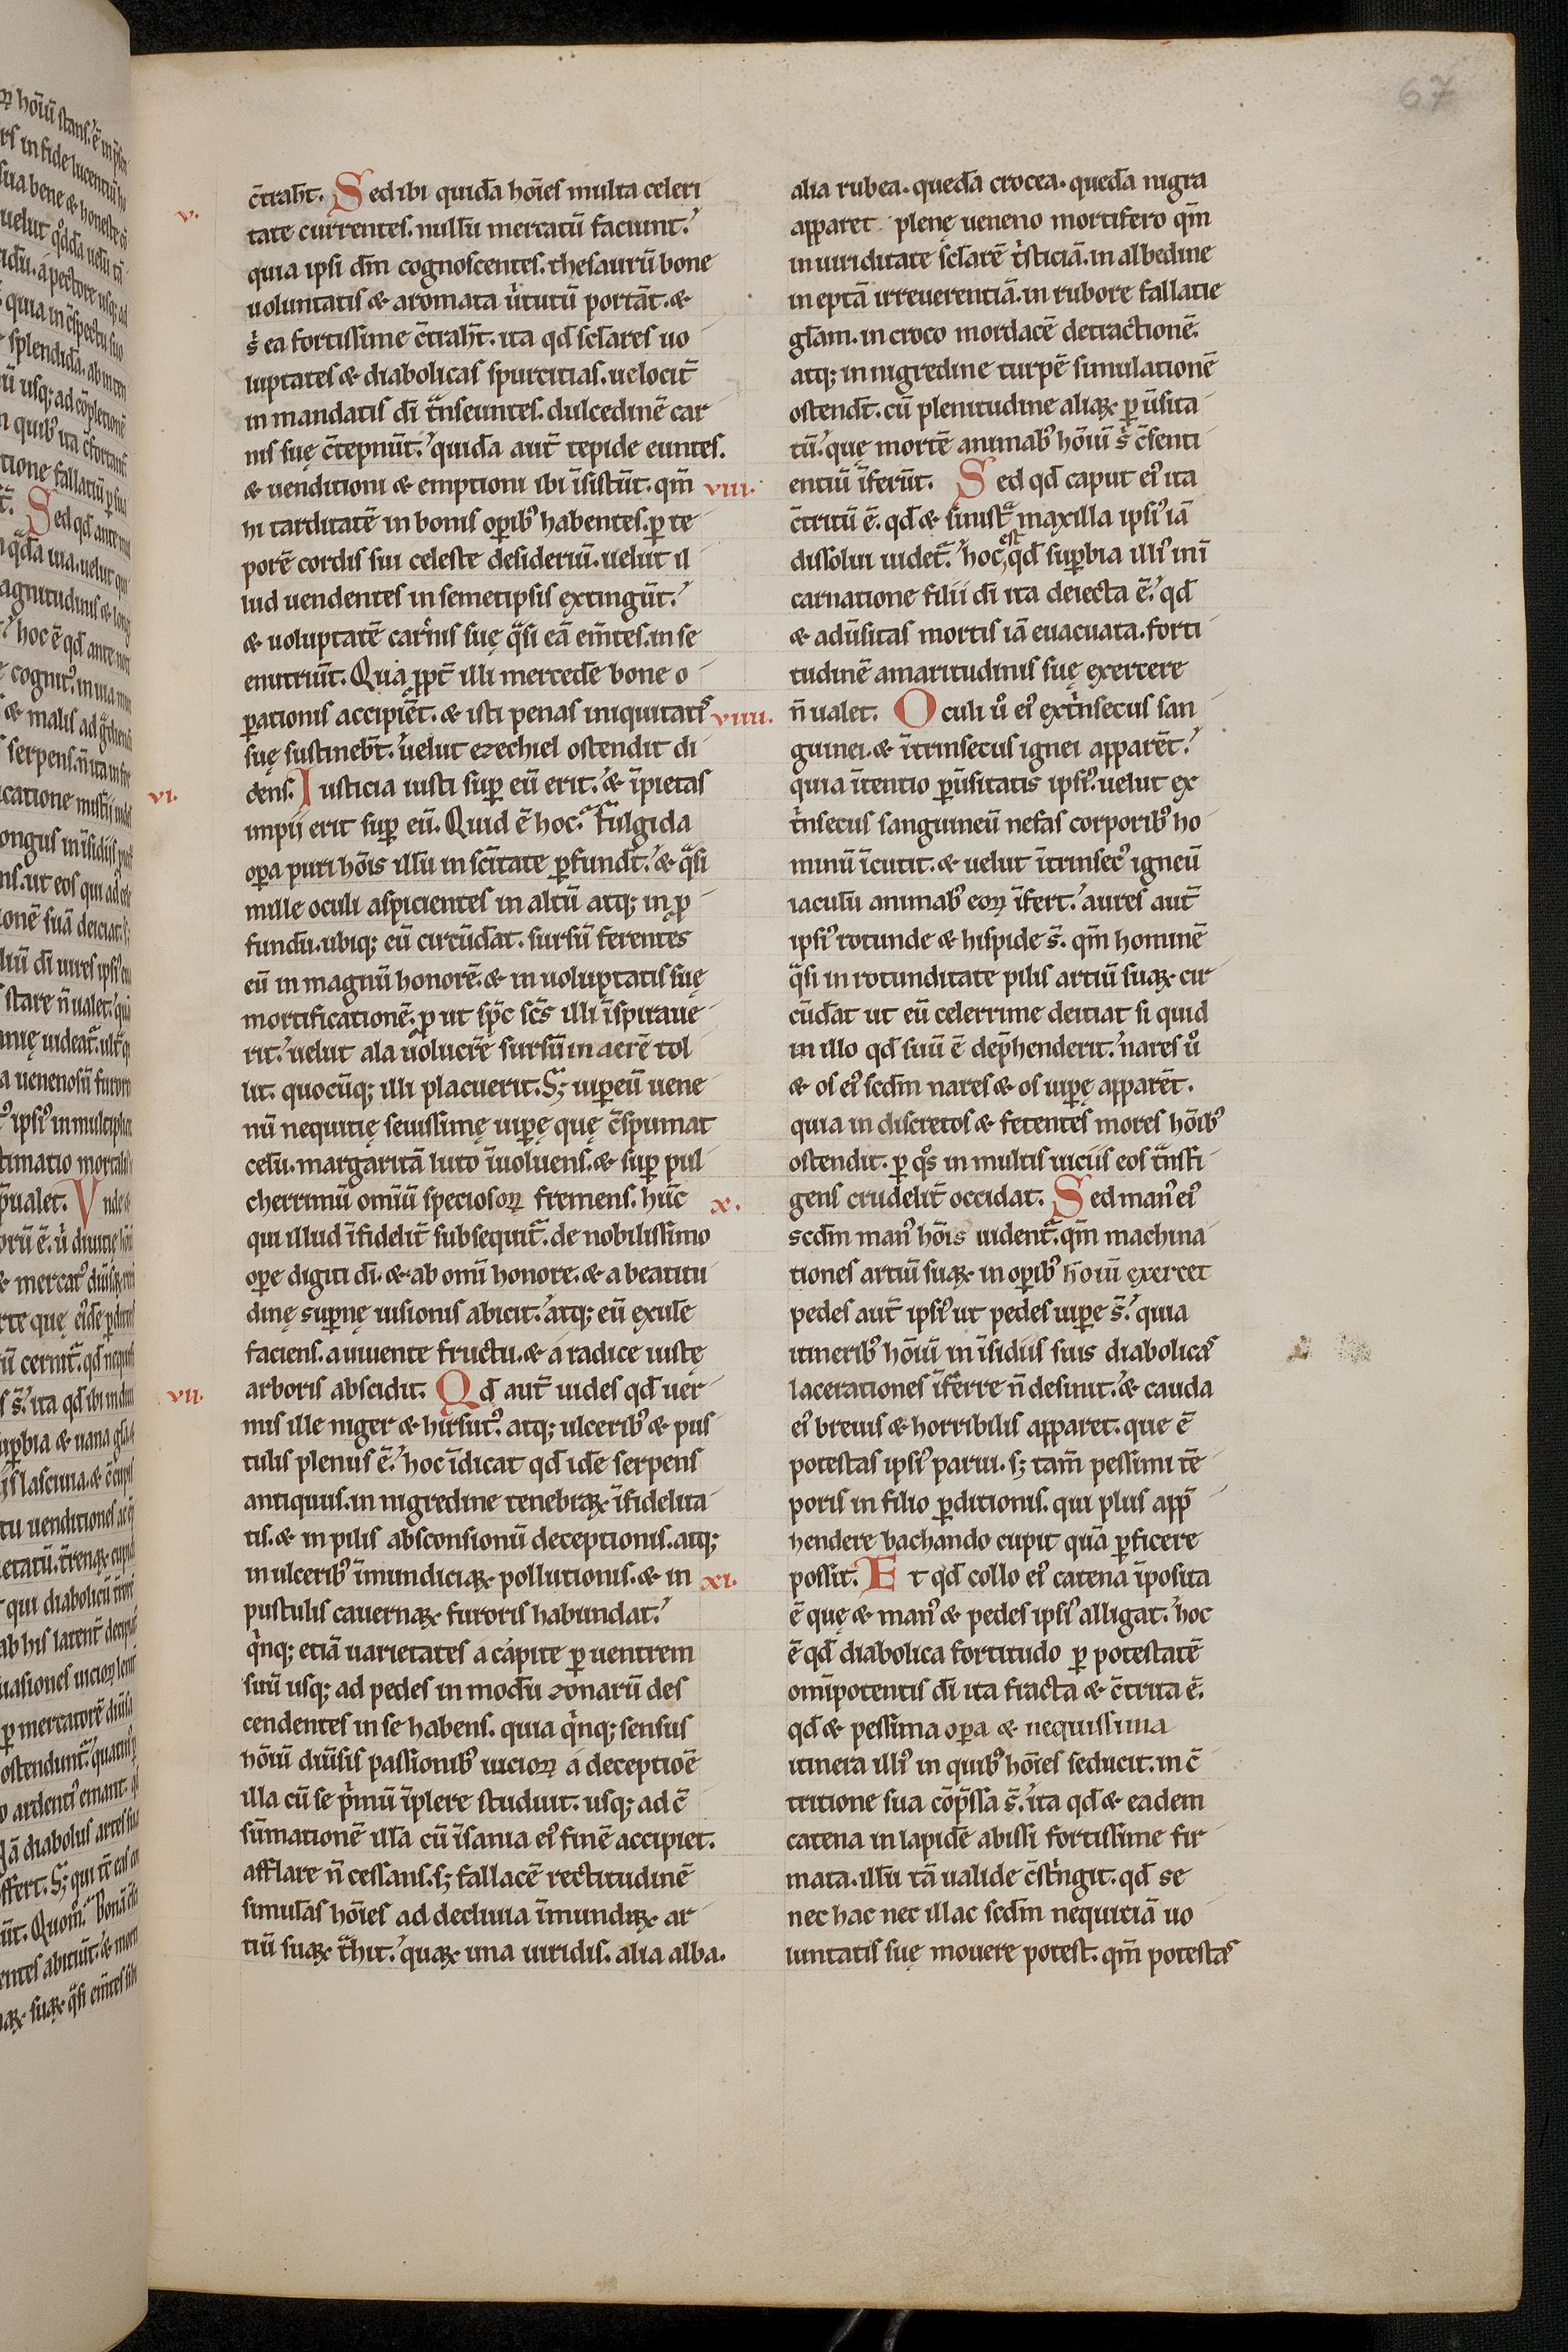 67
v.
c̄trah̄t. Sed ibi quidā hōīes multa celeri
tate currentes. nullū mercatū faciunt.
quia ipsi dm̄ cognoscentes. thesaurū bone
uoluntatis & aromata u̇tutū portāt. &
s̄ ea fortissime c̄trah̄t. ita qd̄ sclares uo
luptates & diabolicas spurcitias. uelocit̄
in mandatis dī t̄nseuntes. dulcedinē car
nis suę c̄tepnūt. quidā aut̄ tepide euntes.
& uenditioni & emptioni ibi īsistūt. qm̄
hi tarditatē in bonis opib᾽ habentes. p te
porē cordis sui celeste desideriū. uelut il
lud uendentes in semetipsis extingūt.
& uoluptatē carnis suę q̄si eā em̄tes. in se
enutriūt. Qua ꝓpt̄ illi mercedē bone o
ꝑationis accipiēt. & isti penas iniquitatis
suę sustineb̄t. uelut ezechiel ostendit di
vi.
dens. Iusticia iusti suꝑ eū erit. & īpietas
impij erit suꝑ eū. Quid ē hoc. Fulgida
oꝑa puri hōis illū in sc̄itate ꝑfund̄t. & q̄si
mille oculi aspicientes in altū atq; in ꝓ
fundū. ubiq; eū circūdāt. sursū ferentes
eū in magnū honorē. & in uoluptatis suę
mortificationē. ꝓ ut sp̄c sc̄s illi īspiraue
rit. uelut ala uolucrē sursū in aerē tol
lit. quocūq; illi placuerit. S; uiꝑeū uene
nū nequitię seuissimę uiꝑę quę c̄spumat
celū. margaritā luto īuoluens. & suꝑ pul
cherrimū omīū speciosoꝝ fremens. hūc
qui illud īfidelit̄ subsequit̄. de nobilissimo
oꝑe digiti dī. & ab omī honore. & a beatitu
dinę suꝑnę uisionis abicit. atq; eū exulē
faciens. a uiuente fructu. & a radice iustę
vii.
arboris abscidit. Qd̄ aut̄ uides qd̄ uer
mis ille niger & hirsut᾽. atq; ulcerib᾽ & pus
tulis plenus ē. hoc īdicat qd̄ idē serpens
antiquus. in nigredine tenebraꝝ īfidelita
tis. & in pilis absconsionū deceptionis. atq;
in ulcerib᾽ īmundiciaꝝ pollutionis. & in
pustulis cauernaꝝ furoris habundat.
q̇nq; etiā uarietates a capite ꝑ uentrem
suū usq; ad pedes in modū zonarū des
cendentes in se habens. quia q̇nq; sensus
hōiū diūsis passionib᾽ uicioꝝ a deceptioē
illa cū se p̄mū īplere studuit. usq; ad c̄
sūmationē illā cū īsania ei᾽ finē accipiet.
afflare n̄ cessans. s; fallacē rectitudinē
simulās hōīes ad decliuia īmundaꝝ ar
tiū suaꝝ t̄hit. quaꝝ una uiridis. alia alba.
alia rubea. quedā crocea. quedā nigra
apparet plenę ueneno mortifero qm̄
in uiriditate sclarē t̄sticiā. in albedine
ineptā irreuerentiā. in rubore fallacie
gl̄am. in croco mordacē detractionē.
atq; in nigredine turpē simulationē
ostend̄t. cū plenitudine aliaꝝ ꝑūsita
tū. quę mortē animab᾽ hōiū s̄ c̄senti
viii.
entiū īferūt. Sed qd̄ caput ei᾽ ita
c̄tritū ē. qd̄ & sinist̄ maxilla ipsi᾽ iā
dissolui uidet̄. hoc est qd̄ suꝑbia illi᾽ in ī
carnatione filii dī ita deiecta ē. qd̄
& adūsitas mortis iā euacuata. forti
tudinē amaritudinis suę exercere
viiii.
n̄ ualet. Oculi ů ei᾽ ext̄nsecus san
guinei. & īt̄rinsecus ignei apparēt.
quia ītentio ꝑūsitatis ipsi᾽. uelut ex
t̄nsecus sanguineū nefas corporib᾽ ho
minū īcutit. & uelut īt̄rinsec᾽ igneū
iaculū animab᾽ eoꝝ īfert. aures aut̄
ipsi᾽ rotunde & hispide s̄. qm̄ hominē
q̄si in rotunditate pilis artiū suaꝝ cir
cūdat ut eū celerrime deiciat si quid
in illo qd̄ suū ē dep̄henderit. nares ů
& os ei᾽ scdm̄ nares & os uiꝑę apparēt.
quia indiscretos & fetentes mores hōib᾽
ostendit. ꝑ q̊s in multis uiciis eos t̄nsfi
x.
gens crudelit̄ occidat. Sed man᾽ ei᾽
scdm̄ man᾽ hōis uident̄. qm̄ machina
tiones artiū suaꝝ in opib᾽ hōiū exercet
pedes aut̄ ipsi᾽ ut pedes uiꝑe s̄. quia
itinerib᾽ hōiū in īsidiis suis diabolicas
lacerationes īferre n̄ desinit. & cauda
ei᾽ breuis & horribilis apparet. que ē
potestas ipsi᾽ parui. s; tam̄ pessimi tē
poris in filio ꝑditionis. qui plus app̄
hendere bachando cupit quā ꝑficere
xi.
possit. Et qd̄ collo ei᾽ catena īposita
ē quę & man᾽ & pedes ipsi᾽ alligat. hoc
ē qd̄ diabolica fortitudo ꝑ potestatē
omīpotentis dī ita fracta & c̄trita ē.
qd̄ & pessima oꝑa & nequissima
itinera illi᾽ in quib᾽ hōīes seducit. in c̄
tritione sua cōp̄ssa s̄. ita qd̄ & eadem
catena in lapidē abissi fortissime fir
mata. illū tā ualide c̄st̄ngit. qd̄ se
nec hac nec illac scdm̄ nequitiā uo
luntatis suę mouere potest. qm̄ potestas